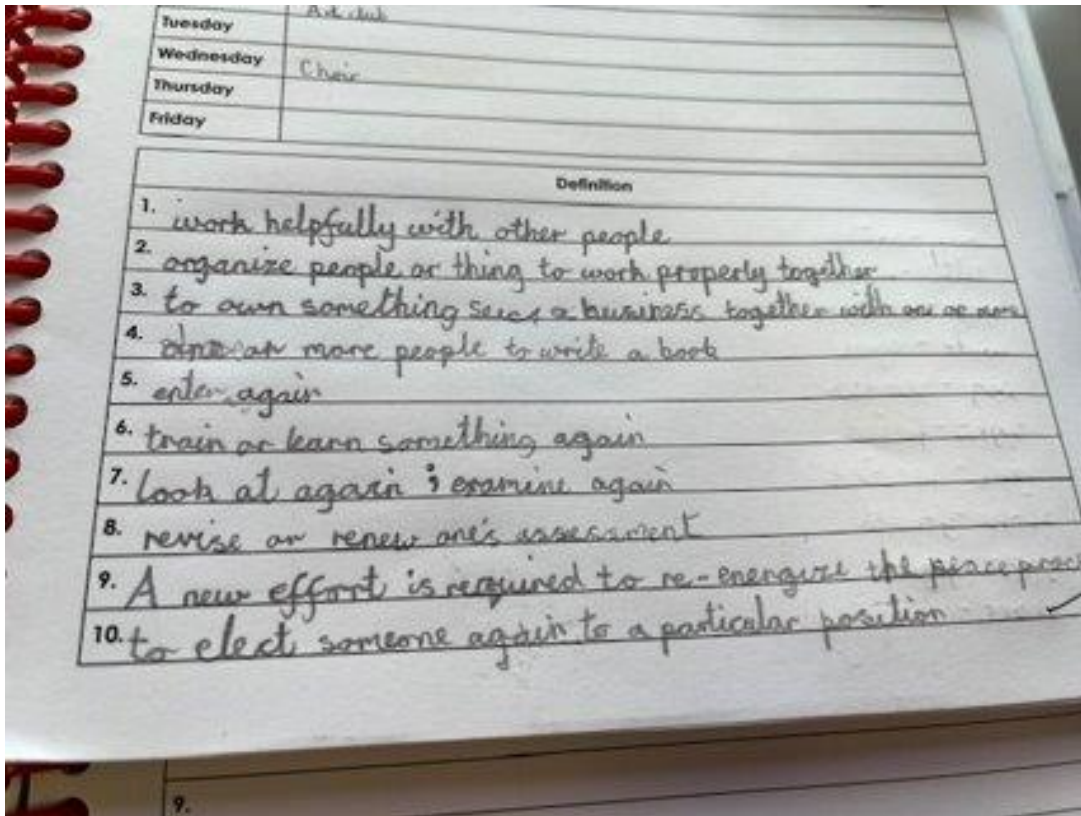 Tuesday Art club
Wednesday
Choir
Thursday
Friday
Definition
1. work helpfully with other people
2. organize people or thing to work properly together
3. to own something a business together with one or more
4. or more people to write a book
5. enter again
6. train or learn something again
7. look at again ; examine again
8. revise or renew one's assessment
9. A new effort is required to re-energize the peace
10. to elect someone again to a particular position
9.